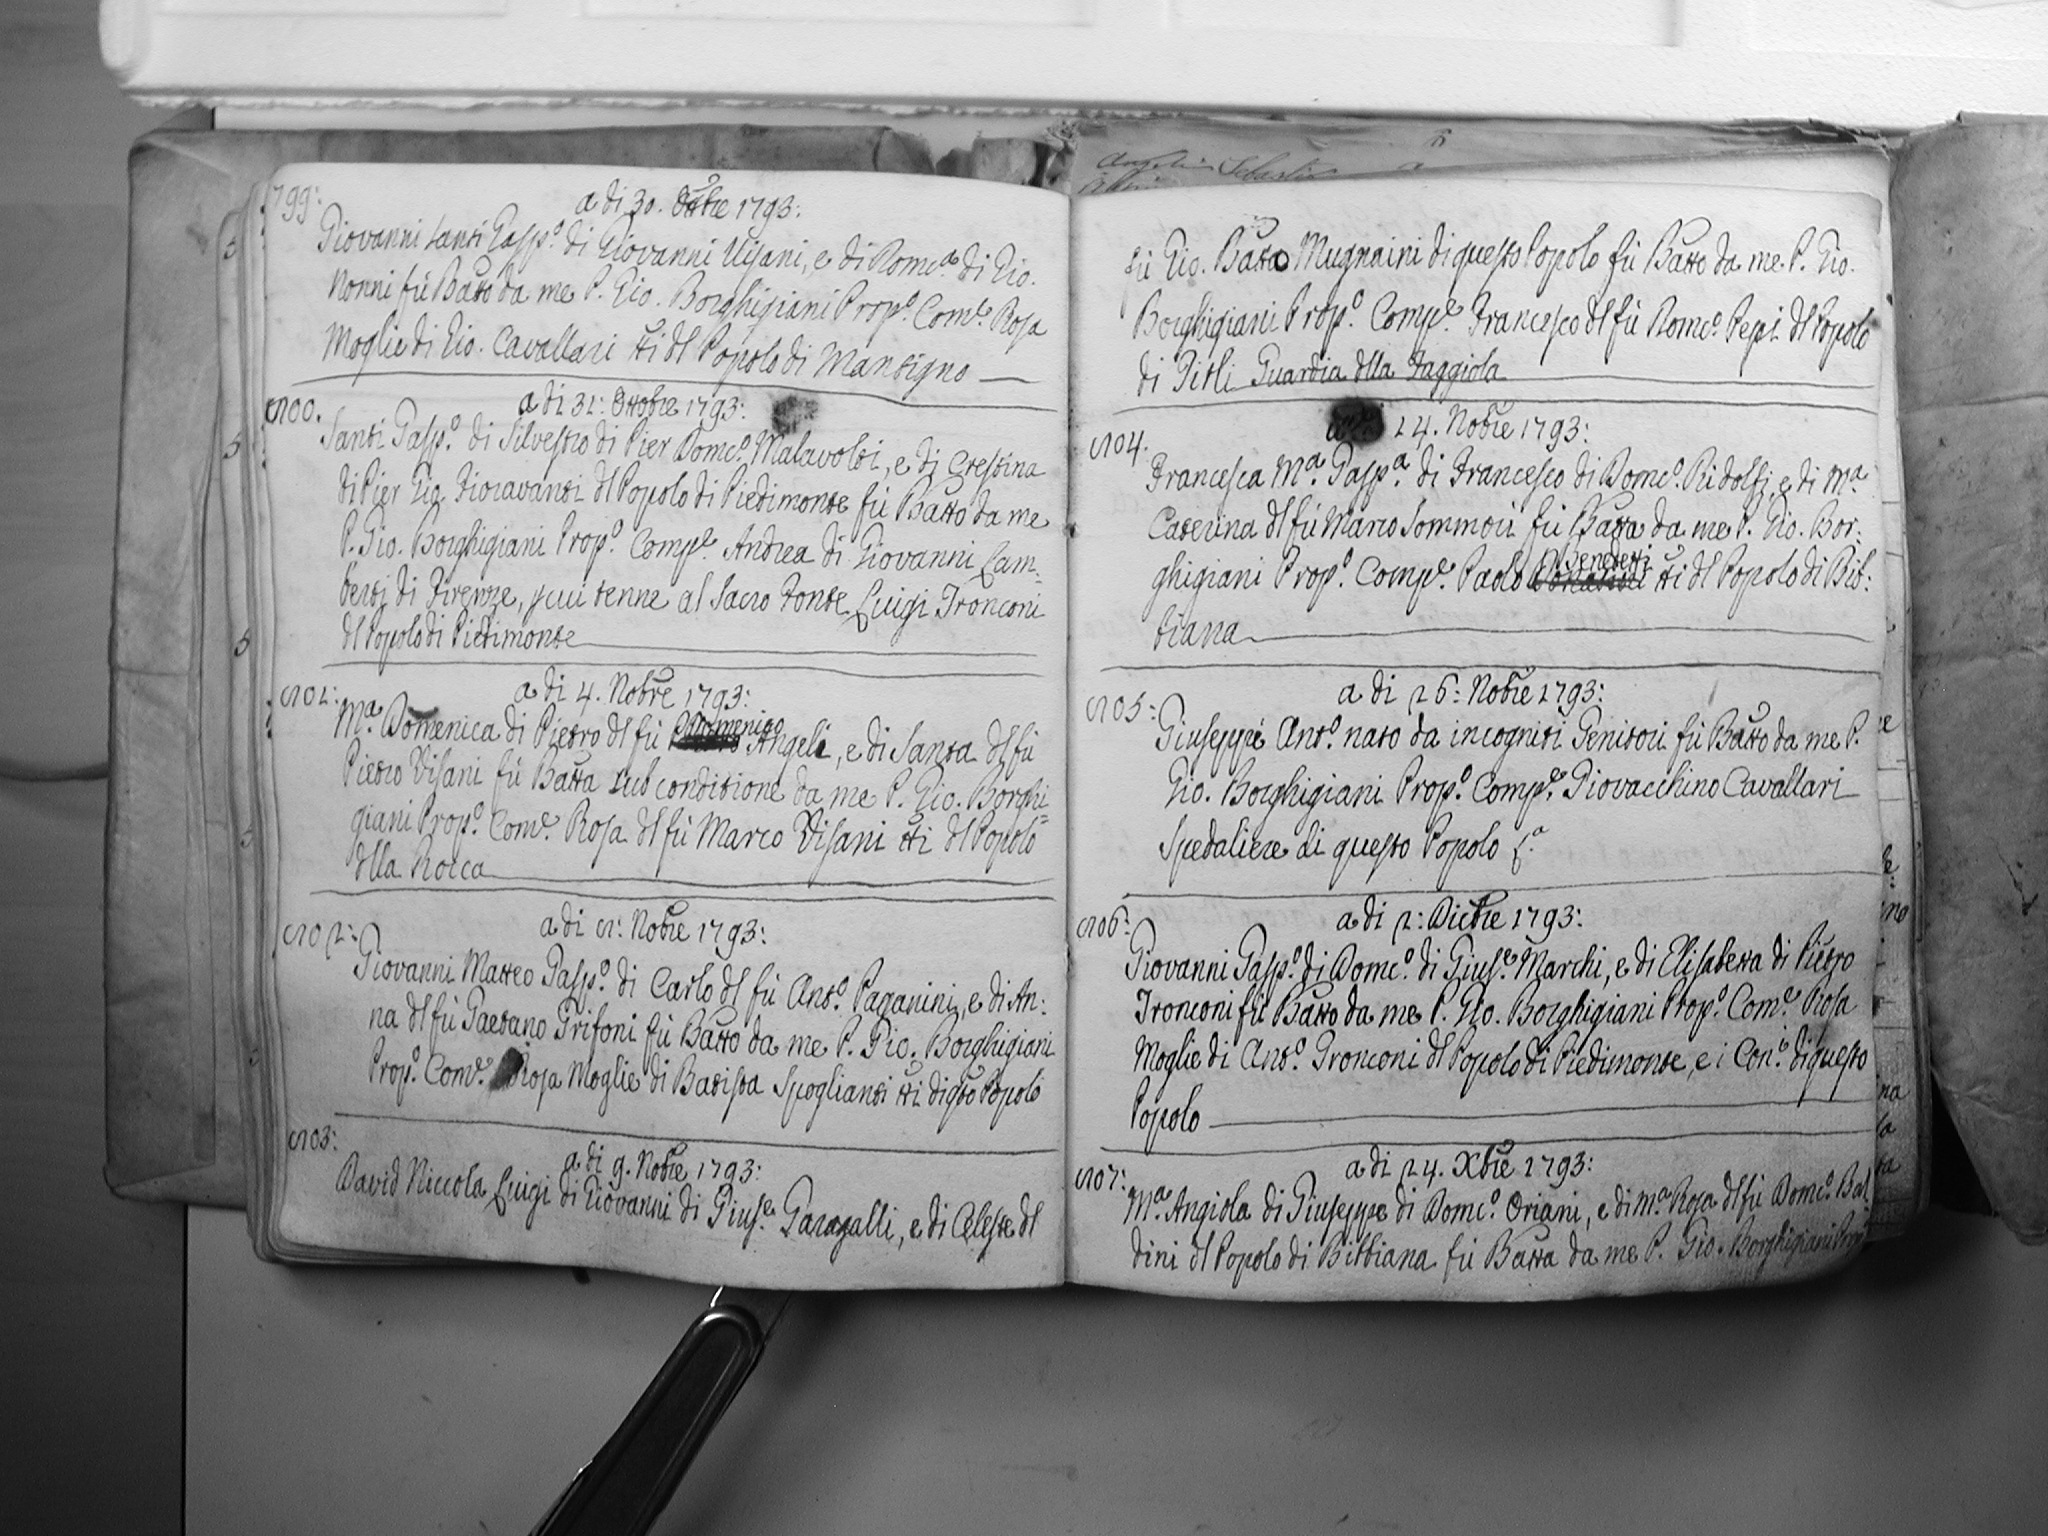 799:
a dì 30. Ottbre 1793:
Giovanni Santi Gasp.º di Giovanni Visani, e di Dom.ca di Gio.
Nonni fù Batto da me P. Gio. Borghigiani Prop.º Com.e Rosa
Moglie di Gio. Cavallari tti dl Popolo di Mantigno
800.
a dì 31: Ottobre 1793:
Santi Gasp.º di Silvestro di Pier Dom.co Malavolti, e di Crestina
di Pier Gio. Fioravanti dl Popolo di Piedimonte fù Batto da me
P. Gio. Borghigiani Prop.º Comp.e Andrea di Giovanni Lam=
berti di Firenze, p cui tenne al Sacro Fonte Luigi Tronconi
dl Popolo di Piedimonte
801:
a dì 4. Nobre 1793:
M.a Domenica di Pietro dl fù Domenico Angeli, e di Santa dl fù
Pietro Visani fù Batta sub conditione da me P. Gio. Borghi=
giani Prop.º Com.e Rosa dl fù Marco Visani tti dl Popolo
dlla Rocca
802:
a dì 8: Nobre 1793:
Giovanni Matteo Gasp.º di Carlo dl fù Ant.º Paganini, e di An:
na dl fù Gaetano Grifoni fù Batto da me P. Gio. Borghigiani
Prop.º Com.e Rosa Moglie di Batista Spoglianti tti di qto Popolo
803:
a dì 9. Nobre 1793:
David Niccola Luigi di Giovanni di Gius.e Garagalli, e di Celeste dl
fù Gio. Batta Mugnaini di questo Popolo fù Batto da me P. Gio.
Borghigiani Prop.º Comp.e Francesco dl fù Dom.co Pepi dl Popolo
di Pitli Guardia dlla Faggiola
804.
14. Nobre 1793:
Francesca M.a Gasp.a di Francesco di Dom.co Ridolfi, e di M.a
Caterina dl fù Marco Sommori fù Batta da me P. Gio. Bor:
ghigiani Prop.º Comp.e Paolo Benedetti tti dl Popolo di Bib:
biana
805:
a dì 26: Nobre 1793:
Giuseppe Ant.º nato da incogniti Genitori fù Batto da me P.
Gio. Borghigiani Prop.º Comp.e Giovacchino Cavallari
Spedaliere di questo Popolo
806:
a dì 2: Dicbre 1793:
Giovanni Gasp.º di Dom.co di Gius.e Marchi, e di Elisabetta di Pietro
Tronconi fù Batto da me P. Gio. Borghigiani Prop.º Com.e Rosa
Moglie di Ant.º Tronconi dl Popolo di Piedimonte, e i Con.i di questo
Popolo
807:
a dì 24. Xbre 1793:
M.a Angiola di Giuseppe di Dom.co Oriani, e di M.a Rosa dl fù Dom.co Bal
dini dl Popolo di Bibbiana fù Batta da me P. Gio. Borghigiani Prop